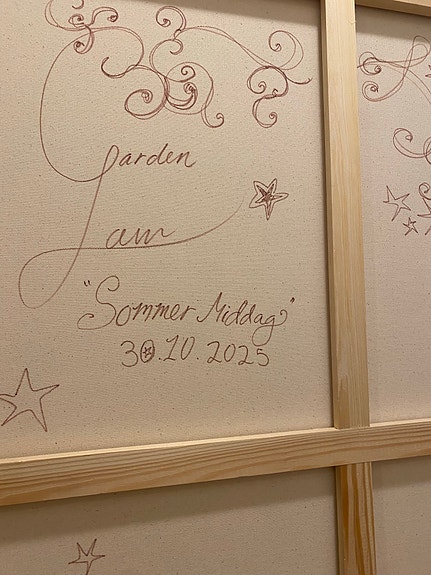 Garden
Jam
"Sommer Middag"
30.10.2025